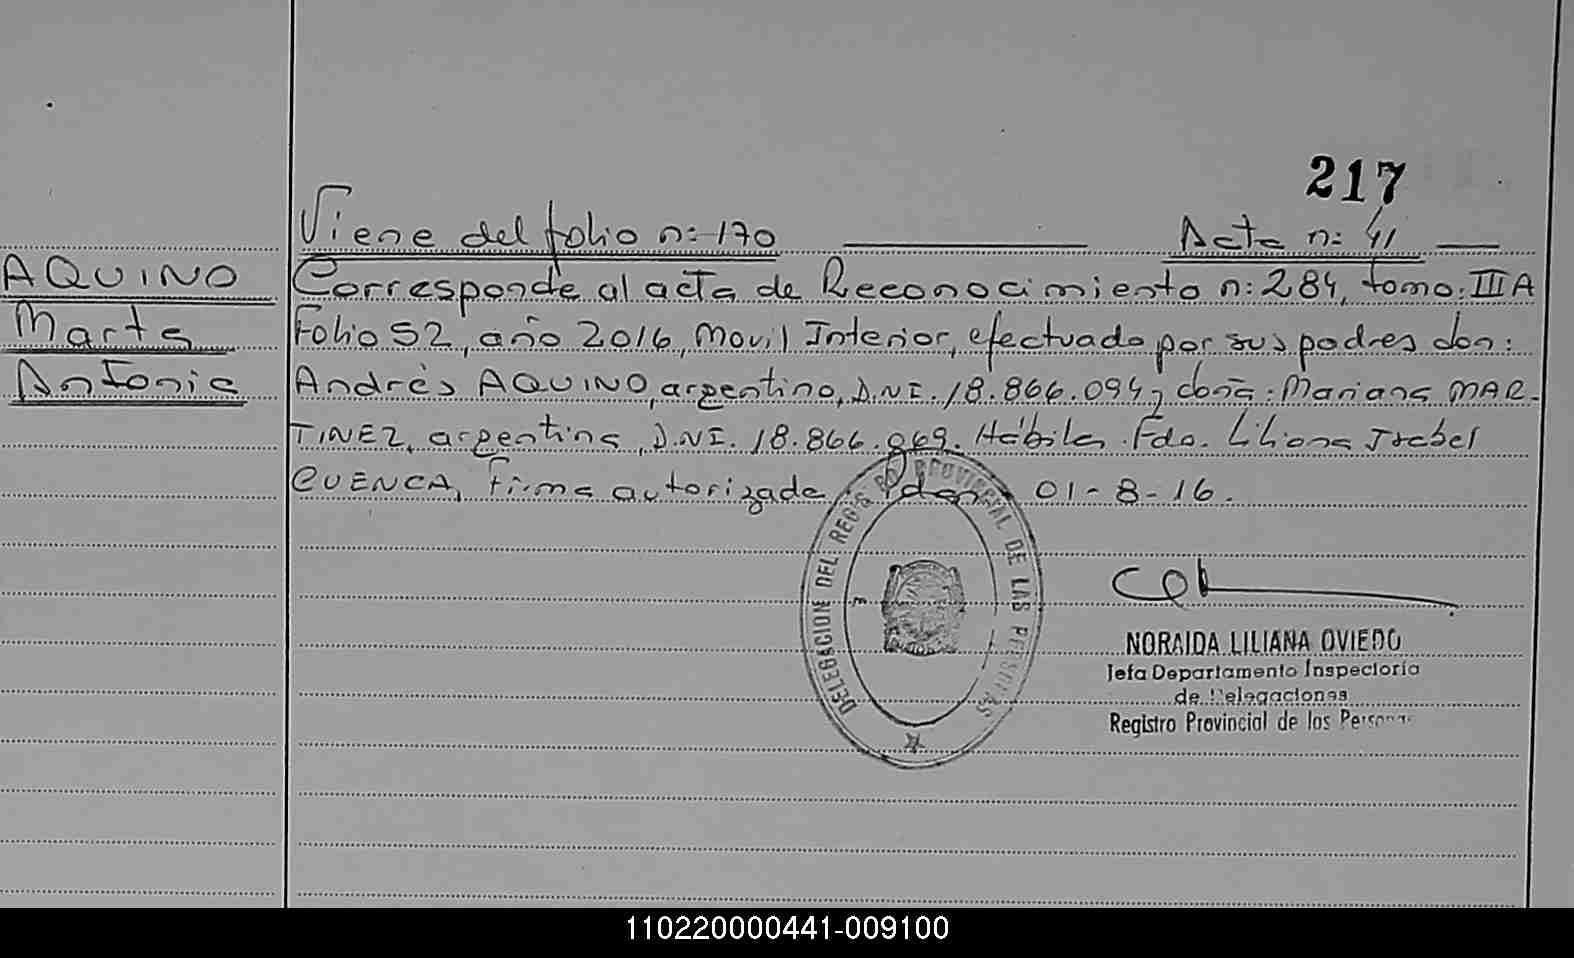 217
Viene del folio n: 170 Acta n: 41
AQUINO
Marta
Antonia
Corresponde al acta de Reconocimiento n: 284, tomo: III A
Folio 52, año 2016, Movil Interior, efectuado por sus padres don:
Andrés AQUINO, argentino, D.N.I. 18.866.094 y doña: Mariana MAR-
TINEZ, argentina, D.N.I. 18.866.069. Hábiles. Fdo. Liliana Isabel
CUENCA, Firma autorizada. 01-8-16.
DELEGACION DEL REGISTRO PROVINCIAL DE LAS PERSONAS
NORAIDA LILIANA OVIEDO
Jefa Departamento Inspectoria
de Delegaciones
Registro Provincial de las Personas
110220000441-009100